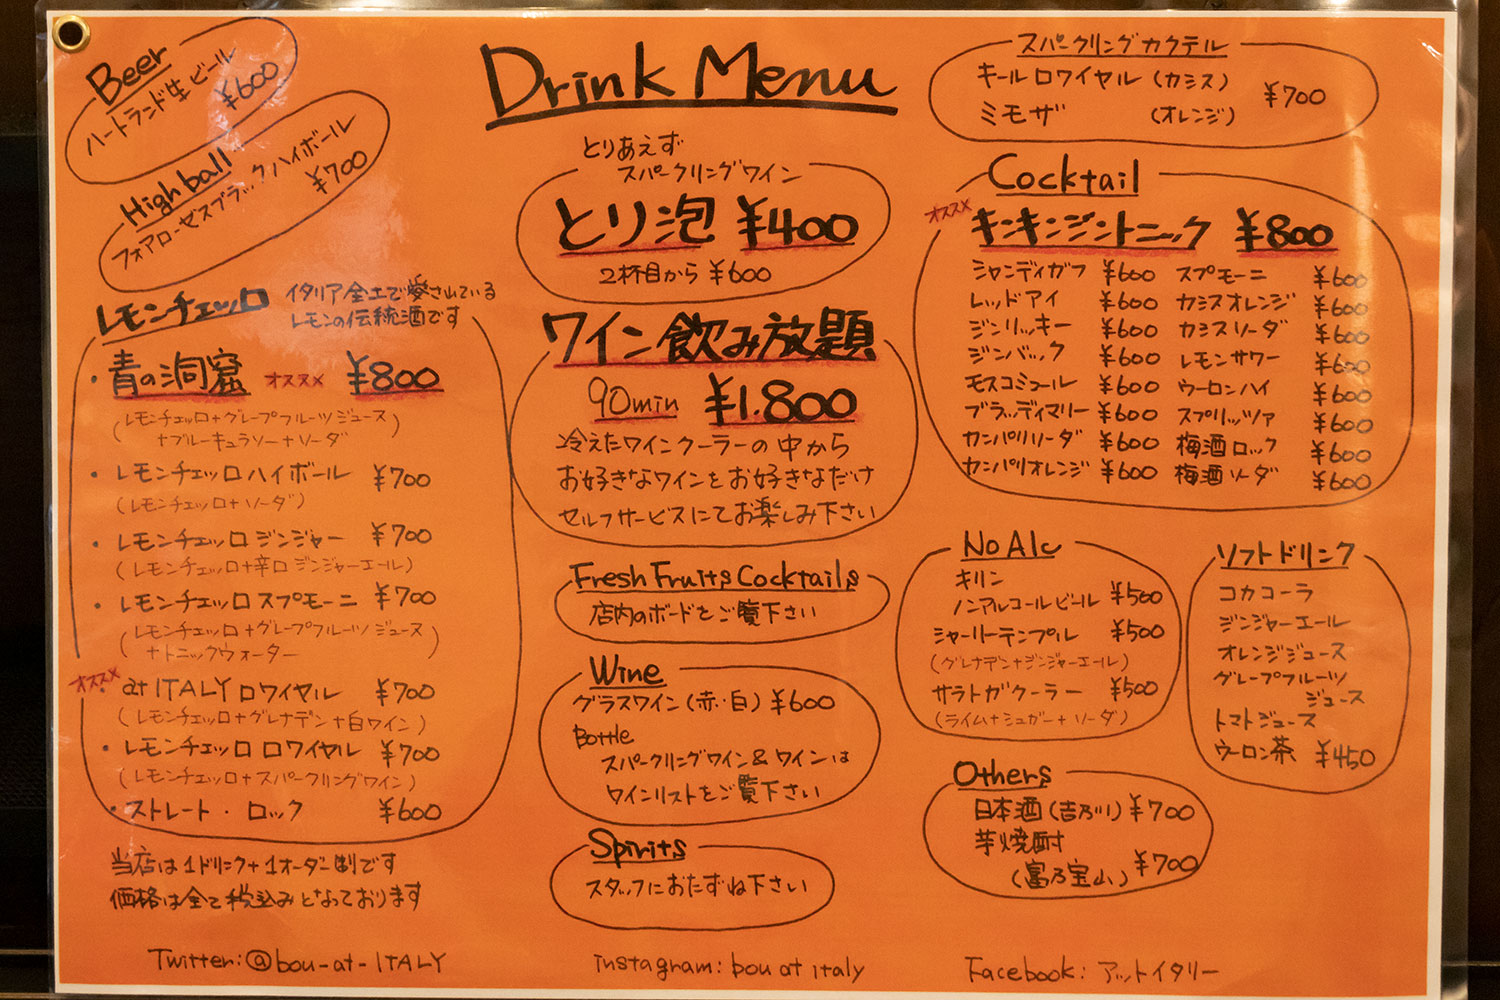 Drink Menu
Beer
ハートランド生ビール
¥600
Highball
フォアローゼスブラックハイボール
¥700
レモンチェッロ
イタリア全土で愛されている
レモンの伝統酒です
・青の洞窟 オススメ ¥800
(レモンチェッロ+グレープフルーツジュース
+ブルーキュラソー+ソーダ)
・レモンチェッロハイボール ¥700
(レモンチェッロ+ソーダ)
・レモンチェッロジンジャー ¥700
(レモンチェッロ+辛口ジンジャーエール)
・レモンチェッロスプモーニ ¥700
(レモンチェッロ+グレープフルーツジュース
+トニックウォーター)
オススメ
・at ITALYロワイヤル ¥700
(レモンチェッロ+グレナデン+白ワイン)
・レモンチェッロ ロワイヤル ¥700
(レモンチェッロ+スパークリングワイン)
・ストレート・ロック ¥600
当店は1ドリンク+1オーダー制です
価格は全て税込みとなっております
Twitter:@bou-at-ITALY
とりあえず
スパークリングワイン
とり泡 ¥400
2杯目から ¥600
ワイン飲み放題
90min ¥1.800
冷えたワインクーラーの中から
お好きなワインをお好きなだけ
セルフサービスにてお楽しみ下さい
Fresh Fruits Cocktails
店内のボードをご覧下さい
Wine
グラスワイン(赤・白) ¥600
Bottle
スパークリングワイン&ワインは
ワインリストをご覧下さい
Spirits
スタッフにおたずね下さい
instagram: bou at italy
スパークリングカクテル
キールロワイヤル (カシス)
ミモザ (オレンジ)
¥700
Cocktail
オススメ
キンキンジントニック ¥800
シャンディガフ ¥600 スプモーニ ¥600
レッドアイ ¥600 カシスオレンジ ¥600
ジンリッキー ¥600 カシスソーダ ¥600
ジンバック ¥600 レモンサワー ¥600
モスコミュール ¥600 ウーロンハイ ¥600
ブラッディマリー ¥600 スプリッツァ ¥600
カンパリソーダ ¥600 梅酒ロック ¥600
カンパリオレンジ ¥600 梅酒ソーダ ¥600
No Alc
キリン
ノンアルコールビール ¥500
シャーリーテンプル ¥500
(グレナデン+ジンジャーエール)
サラトガクーラー ¥500
(ライム+シュガー+ソーダ)
ソフトドリンク
コカコーラ
ジンジャーエール
オレンジジュース
グレープフルーツ
ジュース
トマトジュース
ウーロン茶 ¥450
Others
日本酒(吉乃川) ¥700
芋焼酎
(富乃宝山) ¥700
Facebook: アットイタリー